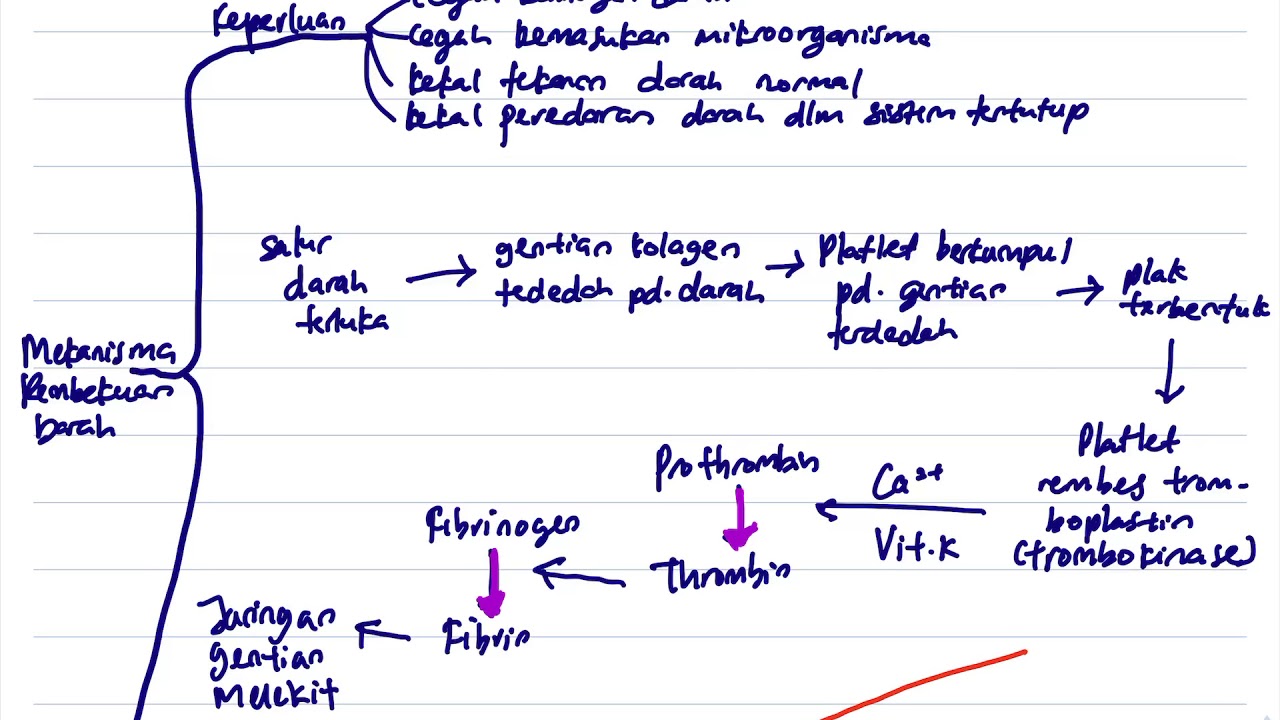 Keperluan
cegah kemasukan mikroorganisma
kekal tekanan darah normal
kekal peredaran darah dlm sistem tertutup
salur
darah
terluka
gentian kolagen
tededah pd. darah
Platlet berkumpul
pd. gentian
terdedah
plak
terbentuk
Mekanisma
Pembekuan
Darah
Platlet
rembes trom-
boplastin
(trombokinase)
Ca²⁺
Vit.K
Prothrombin
Thrombin
Fibrinogen
Fibrin
Jaringan
gentian
melekit